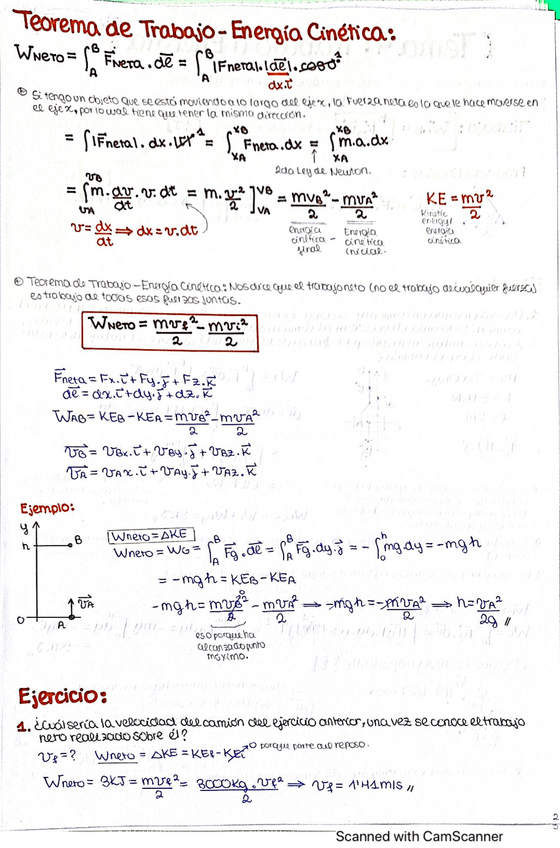 Teorema de Trabajo-Energía Cinética:
WNETO = ∫_A^B F⃗NETA . de⃗ = ∫_A^B |Fneta|.|de⃗|.cos0°¹
dx.i⃗
Si tengo un objeto que se está moviendo a lo largo del eje x, la fuerza neta es la que le hace moverse en
el eje x, por lo cual tiene que tener la misma dirección.
= ∫|F⃗neta|. dx. |i⃗|¹ = ∫_XA^XB Fneta.dx = ∫_XA^XB m.a.dx
2da Ley de Newton.
= ∫_vA^vB m. dv/dt . v. dt = m. v²/2 ]_VA^VB = mvB²/2 - mvA²/2 KE = mv²/2
v = dx/dt ⟹ dx = v.dt
energía cinética final - Energía cinética inicial.
Kinetic energy/ energía cinética.
Teorema de Trabajo-Energía Cinética: Nos dice que el trabajo neto (no el trabajo de cualquier fuerza)
es trabajo de todas esas fuerzas juntas.
WNETO = mvf²/2 - mvi²/2
F⃗neta = Fx.i⃗ + Fy.j⃗ + Fz.K⃗
de⃗ = dx.i⃗ + dy.j⃗ + dz.K⃗
WAB = KEB - KEA = mvB²/2 - mvA²/2
v⃗B = vBx.i⃗ + vBy.j⃗ + vBz.K⃗
v⃗A = vAx.i⃗ + vAy.j⃗ + vAz.K⃗
Ejemplo:
y
h
B
0
A
v⃗A
Wnero = ΔKE
Wnero = WG = ∫_A^B F⃗g . de⃗ = ∫_A^B F⃗g. dy. j⃗ = - ∫_0^h mg.dy = -mgh
= -mgh = KEB - KEA
-mgh = mvB²/2 ⁰ - mvA²/2 ⟹ -mgh = -mvA²/2 ⟹ h = vA²/2g //
es 0 porque ha
alcanzado punto
máximo.
Ejercicio:
1. ¿Cuál sería la velocidad del camión del ejercicio anterior, una vez se conoce el trabajo
nero realizado sobre él?
vf = ? Wnero = ΔKE = KEf - KEi 0 porque parte del reposo.
Wnero = 3KJ = mvf²/2 = 3000Kg . vf²/2 ⟹ vf = 1'41m/s //
Scanned with CamScanner